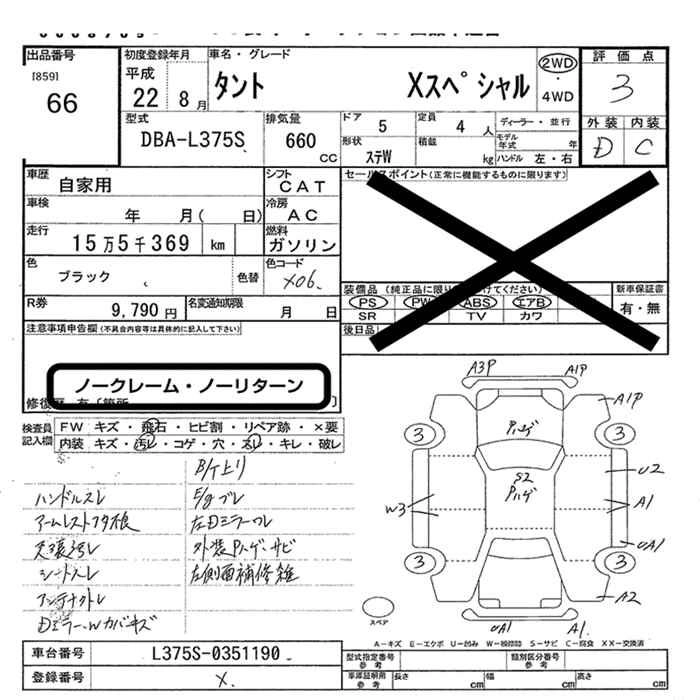 出品番号
[859]
66
初度登録年月
平成
22 8 月
車名・グレード
タント Xスペシャル
2WD
・
4WD
評価点
3
外装 内装
D C
型式
DBA-L375S
排気量
660
CC
ドア 5
定員 4 人
ディーラー・並行
モデル年式 年
形状 ステW
積載 kg
ハンドル 左・右
車歴
自家用
シフト
CAT
車検
年 月( 日)
冷房
AC
走行
15万5千369 km
燃料
ガソリン
色
ブラック
色替
色コード
X06.
R券
9,790 円
名変通知期限
月 日
セールスポイント(正常に機能するものに限ります)
装備品
PS PW ABS エアB
SR TV カワ
新車保証書
有・無
後日品
注意事項申告欄(不具合内容等は具体的に記入して下さい)
ノークレーム・ノーリターン
検査員記入欄
FW キズ・飛石・ヒビ割・リペア跡・×要
内装 キズ・汚レ・コゲ・穴・スレ・キレ・破レ
B/T上り
ハンドルスレ
E/gブレ
アームレストフタ損
左Dミラーワレ
天張汚レ
外装Pハゲ・サビ
シートスレ
左側面補修雑
アンテナクトレ
DミラーWカバーキズ
A3P A1P
A1P
3 3
Pハゲ
S2
Pハゲ
U2
W3
A1
UA1
3 3
A2
UA1 A1.
スペア
A-キズ E-エクボ U-凹み W-板修跡 S-サビ C-腐食 XX-交換済
車台番号
L375S-0351190
型式指定番号
参考
類別区分番号
参考
登録番号
X.
車庫証明用
参考
長さ cm
幅 cm
高さ cm